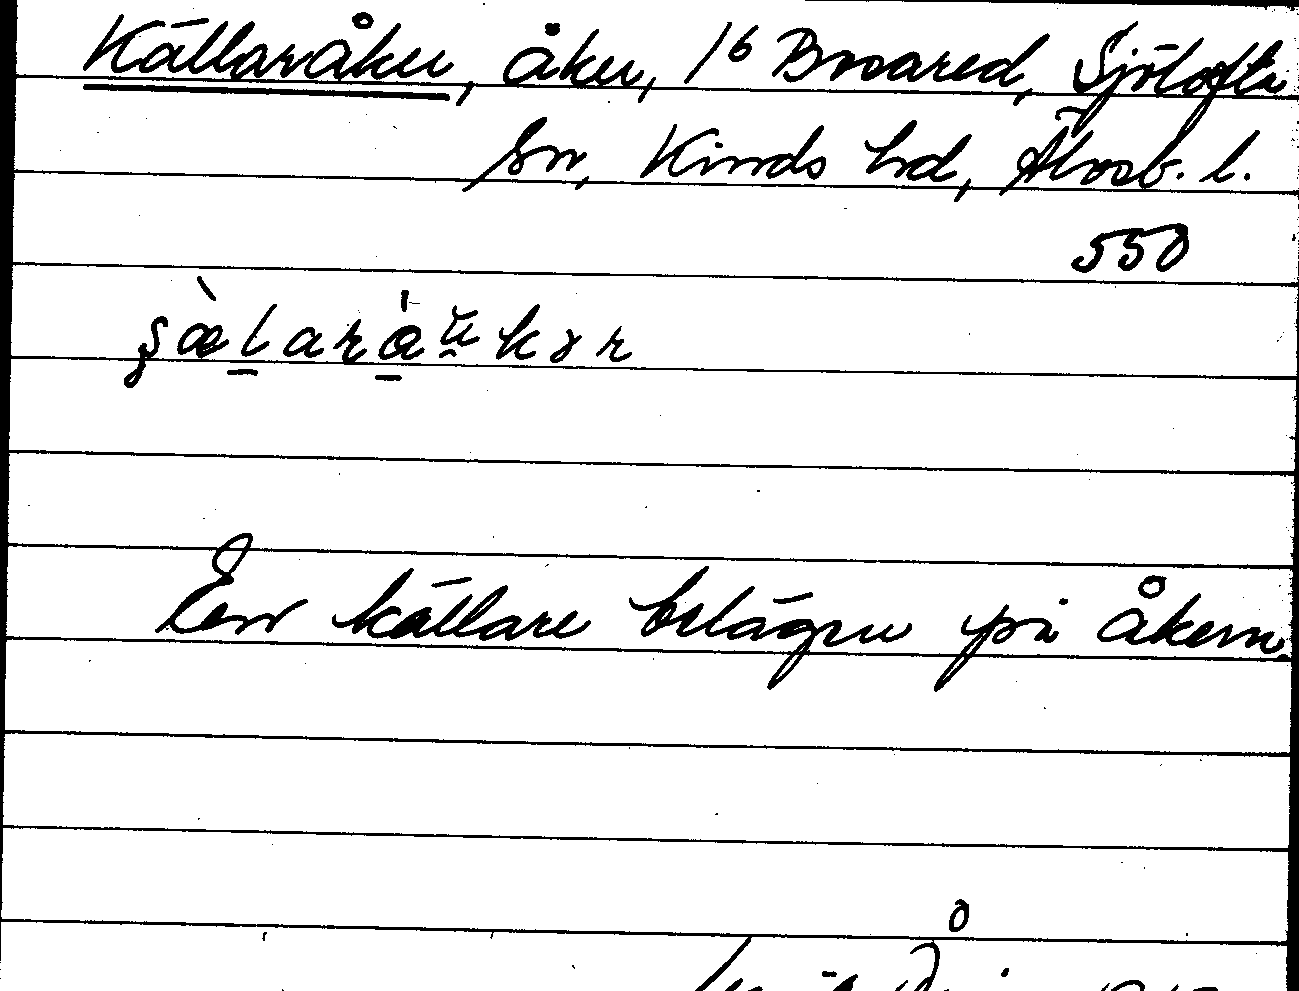 Källaråker, åker, 1⁶ Bosared, Sjötofta
sn, Kinds hd, Älvsb. l.
550
En källare belägen på åkern.